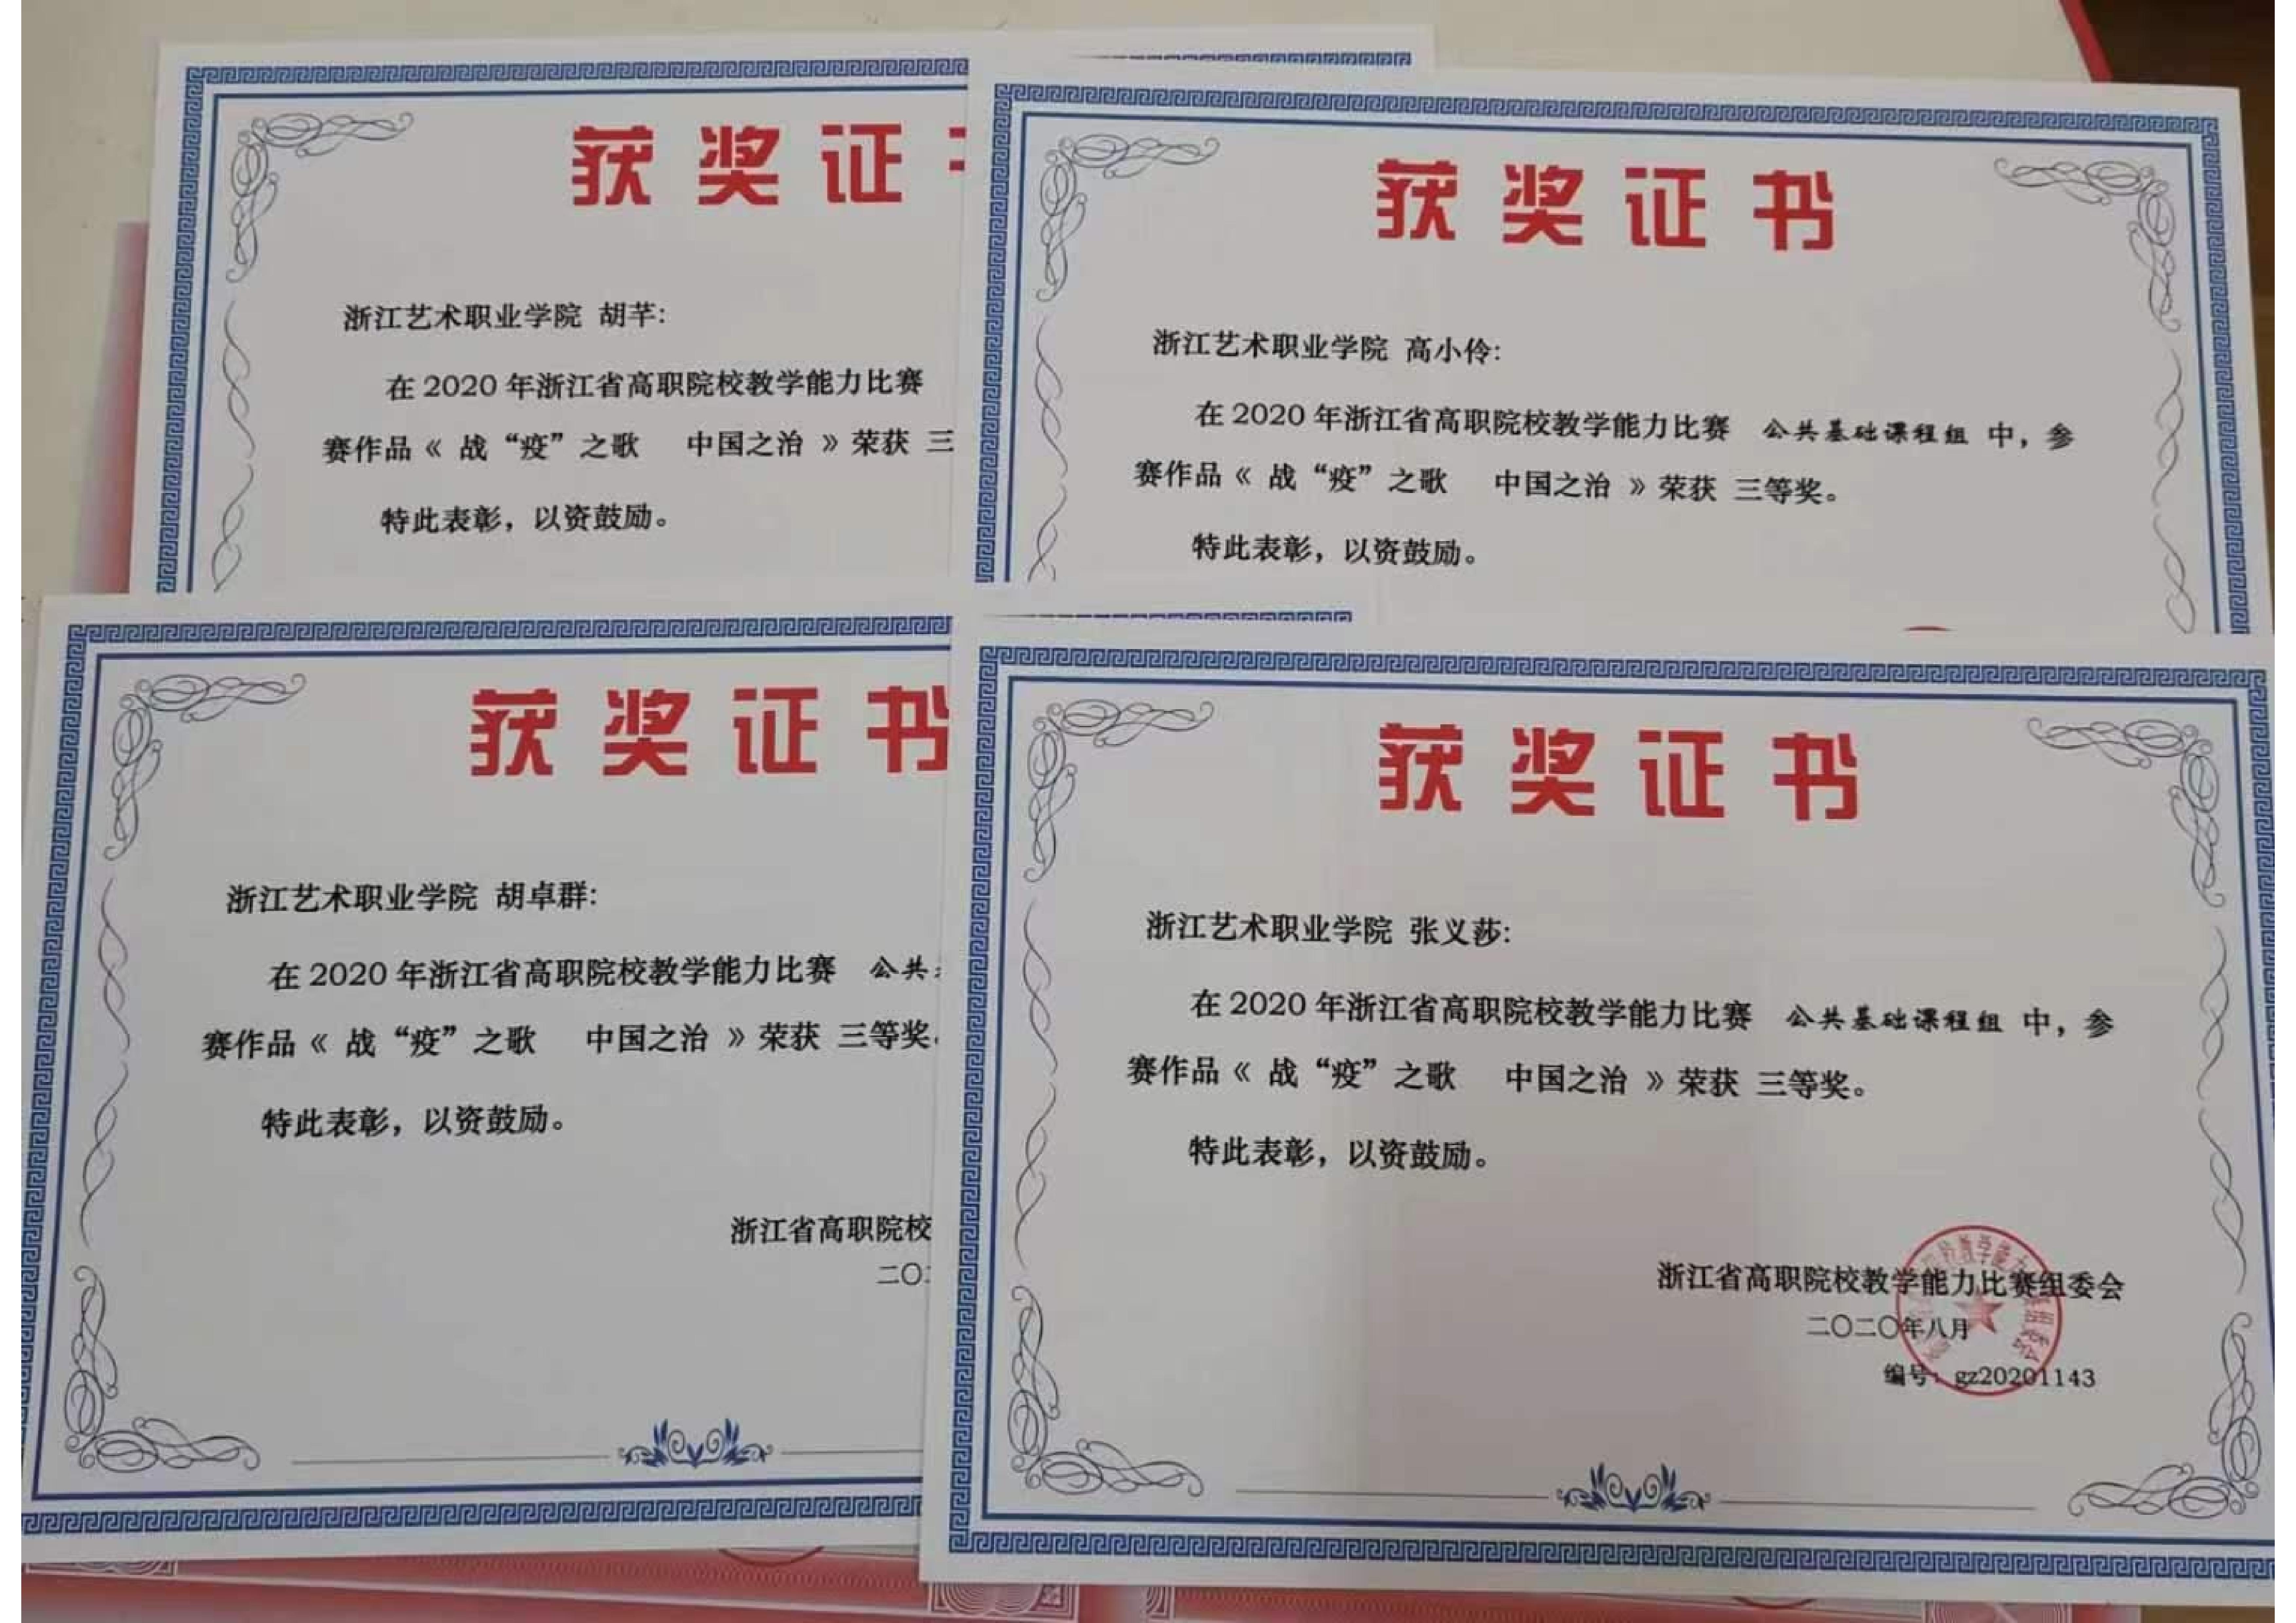 获奖证
浙江艺术职业学院 胡芊:
在 2020 年浙江省高职院校教学能力比赛
赛作品《 战“疫”之歌 中国之治 》荣获 三
特此表彰，以资鼓励。
获奖证书
浙江艺术职业学院 高小伶:
在 2020 年浙江省高职院校教学能力比赛 公共基础课程组 中，参
赛作品《 战“疫”之歌 中国之治 》荣获 三等奖。
特此表彰，以资鼓励。
获奖证书
浙江艺术职业学院 胡卓群:
在 2020 年浙江省高职院校教学能力比赛 公共
赛作品《 战“疫”之歌 中国之治 》荣获 三等奖。
特此表彰，以资鼓励。
浙江省高职院校
二〇
获奖证书
浙江艺术职业学院 张义莎:
在 2020 年浙江省高职院校教学能力比赛 公共基础课程组 中，参
赛作品《 战“疫”之歌 中国之治 》荣获 三等奖。
特此表彰，以资鼓励。
浙江省高职院校教学能力比赛组委会
二〇二〇年八月
编号：gz20201143